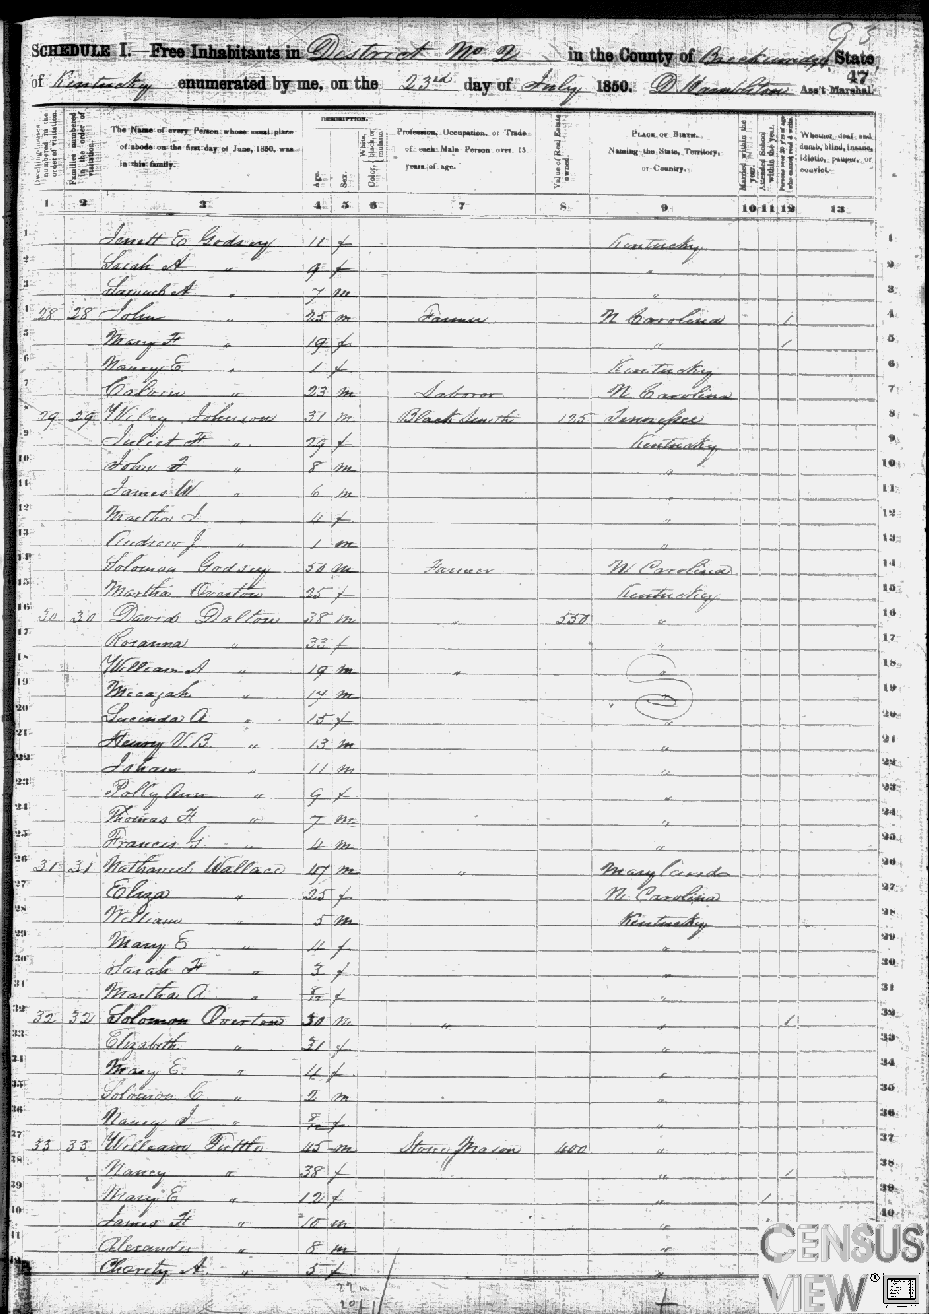 93
SCHEDULE I. Free Inhabitants in District No 2 in the County of Breckinridge State
47
of Kentucky enumerated by me, on the 23rd day of July 1850. Ass't Marshal.
DESCRIPTION.
Dwelling-houses numbered in the order of visitation.
Families numbered in the order of visitation.
The Name of every Person whose usual place of abode on the first day of June, 1850, was in this family.
Age.
Sex.
Color, White, black, or mulatto.
Profession, Occupation, or Trade of each Male Person over 15 years of age.
Value of Real Estate owned.
PLACE OF BIRTH. Naming the State, Territory, or Country.
Married within the year.
Attended School within the year.
Persons over 20 y'rs of age who cannot read & write.
Whether deaf and dumb, blind, insane, idiotic, pauper, or convict.
1 2 3 4 5 6 7 8 9 10 11 12 13
1 E Godsey 11 f Kentucky 1
2 Sarah A " 9 f " 2
3 Samuel A " 7 m " 3
4 28 28 John " 25 m Farmer N Carolina 1 4
5 Mary F " 19 f " 1 5
6 Nancy E " 1 f Kentucky 6
7 Calvin " 23 m Laborer N Carolina 7
8 29 29 Wiley Johnson 31 m Black Smith 125 Tennessee 8
9 Juliet F " 29 f Kentucky 9
10 John F " 8 m " 10
11 James W " 6 m " 11
12 Martha J " 4 f " 12
13 Andrew J " 1 m " 13
14 Solomon Godsey 50 m Farmer N Carolina 14
15 Martha Overton 25 f Kentucky 15
16 30 30 David Dolton 38 m " 550 " 16
17 Rosanna " 33 f " 17
18 William A " 19 m " " 18
19 Micazah " 17 m " 19
20 Lucinda A " 15 f " 20
21 Henry V.B. " 13 m " 21
22 Isham " 11 m " 22
23 Polly Ann " 9 f " 23
24 Thomas H " 7 m " 24
25 Francis G " 4 m " 25
26 31 31 Nathaniel Wallace 47 m " Maryland 26
27 Eliza " 25 f N Carolina 27
28 William " 5 m Kentucky 28
29 Mary E " 4 f " 29
30 Sarah F " 3 f " 30
31 Martha A " 8/12 f " 31
32 32 32 Solomon Overton 30 m " " 1 32
33 Elizabeth " 31 f " 33
34 Mary E " 4 f " 34
35 Solomon C " 2 m " 35
36 Nancy J " 8/12 f " 36
37 33 33 William Tuttle 45 m Stone Mason 400 " 37
38 Nancy " 38 f " 1 38
39 Mary E " 12 f " 1 39
40 James H " 10 m " 40
41 Alexander " 8 m "
42 Charity A " 5 f "
22 m
20 f
CENSUS
VIEW®